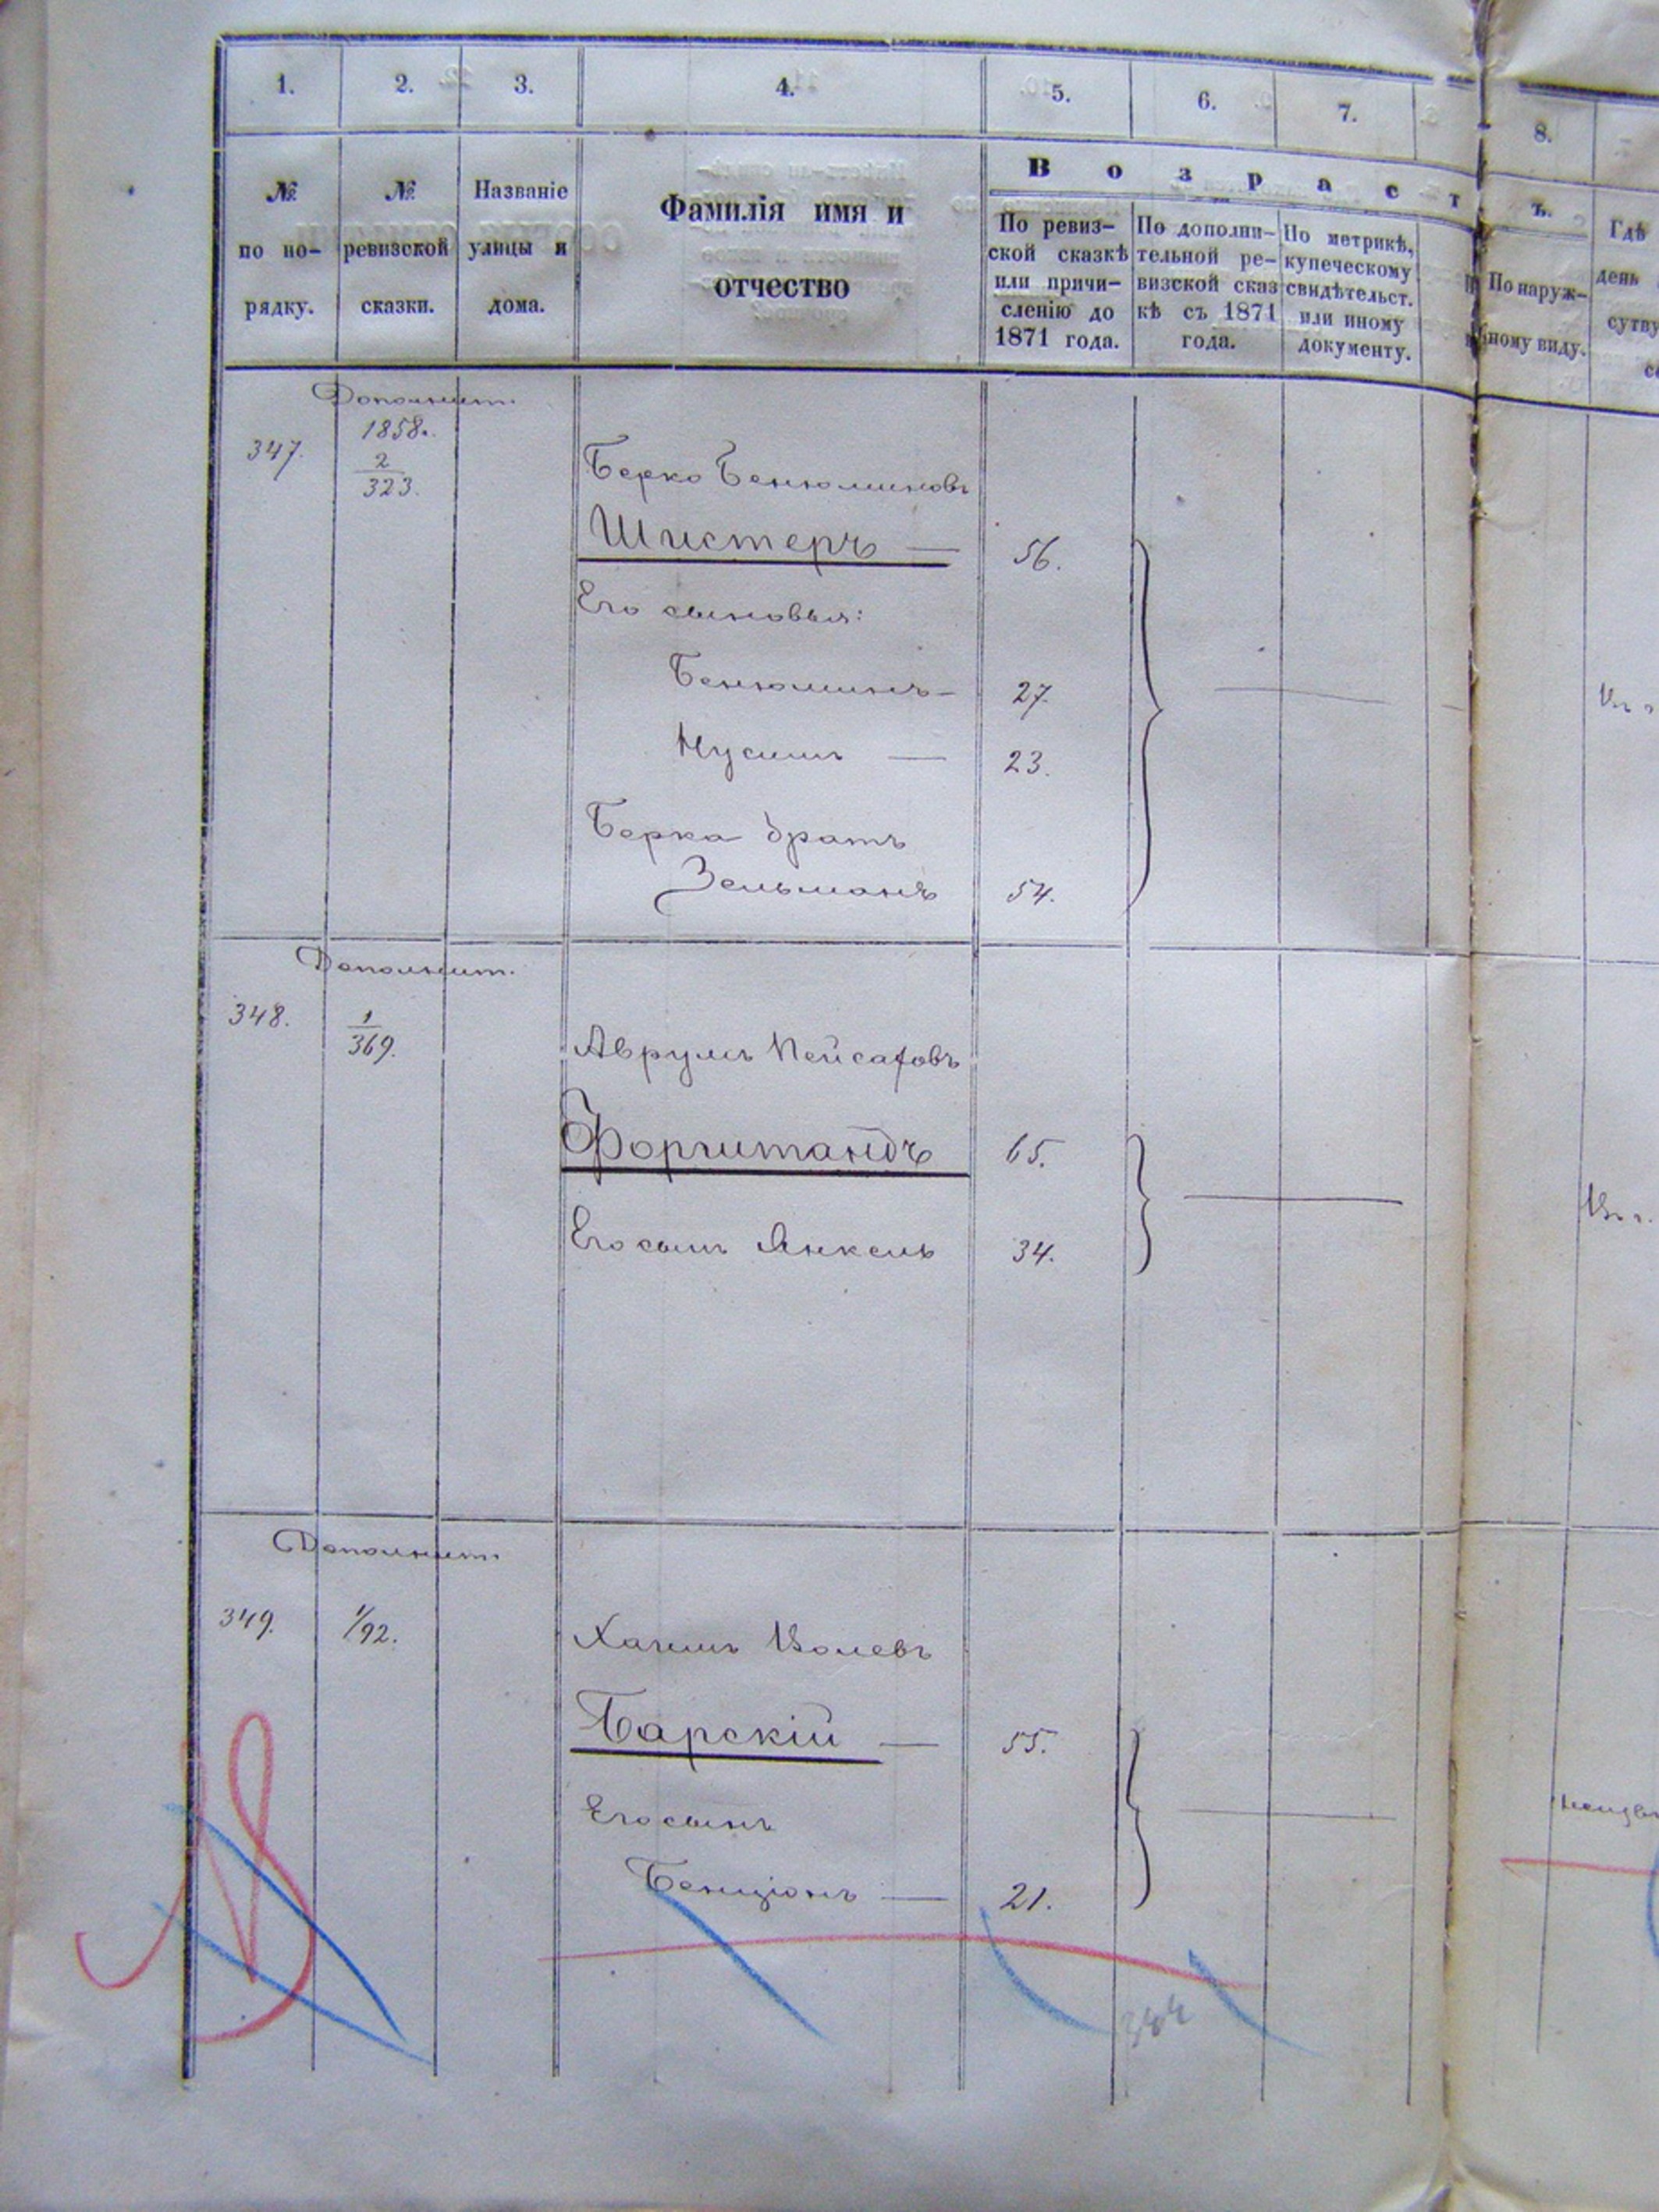 1. 2. 3. 4. 5. 6. 7. 8.
№ по порядку.
№ ревизской сказки.
Названіе улицы и дома.
Фамилія имя и отчество
Возрастъ.
По ревизской сказкѣ или причисленію до 1871 года.
По дополнительной ревизской сказкѣ съ 1871 года.
По метрикѣ, купеческому свидѣтельст. или иному документу.
По наружному виду.
Гдѣ
день
Дополнит.
1858г.
347.
2
323.
Берко Бенюминовъ
Шистеръ — 56.
Его сыновья:
Бенюминъ — 27.
Нусинъ — 23.
Берка братъ
Зельманъ 54.
Дополнит.
348.
1
369.
Аврумъ Пейсаховъ
Форштандъ 65.
Его сынъ Янкель 34.
Дополнит.
349. 1/92.
Хаимъ Волевъ
Барскій — 55.
Его сынъ
Бенціонъ — 21.
344